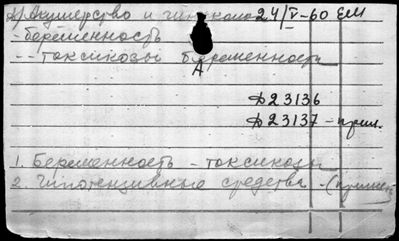 А) Акушерство и гинеколо 24/V-60 ЕМ
- беременность
-- токсикозы беременности
А
Д23136
Д23137 - прил.
1. Беременность - токсикозы
2. Гипотензивные средства - (примен